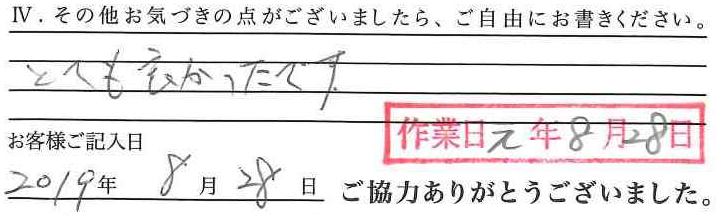 Ⅳ．その他お気づきの点がございましたら、ご自由にお書きください。
とても良かったです
作業日元年8月28日
お客様ご記入日
2019年 8月 28日 ご協力ありがとうございました。